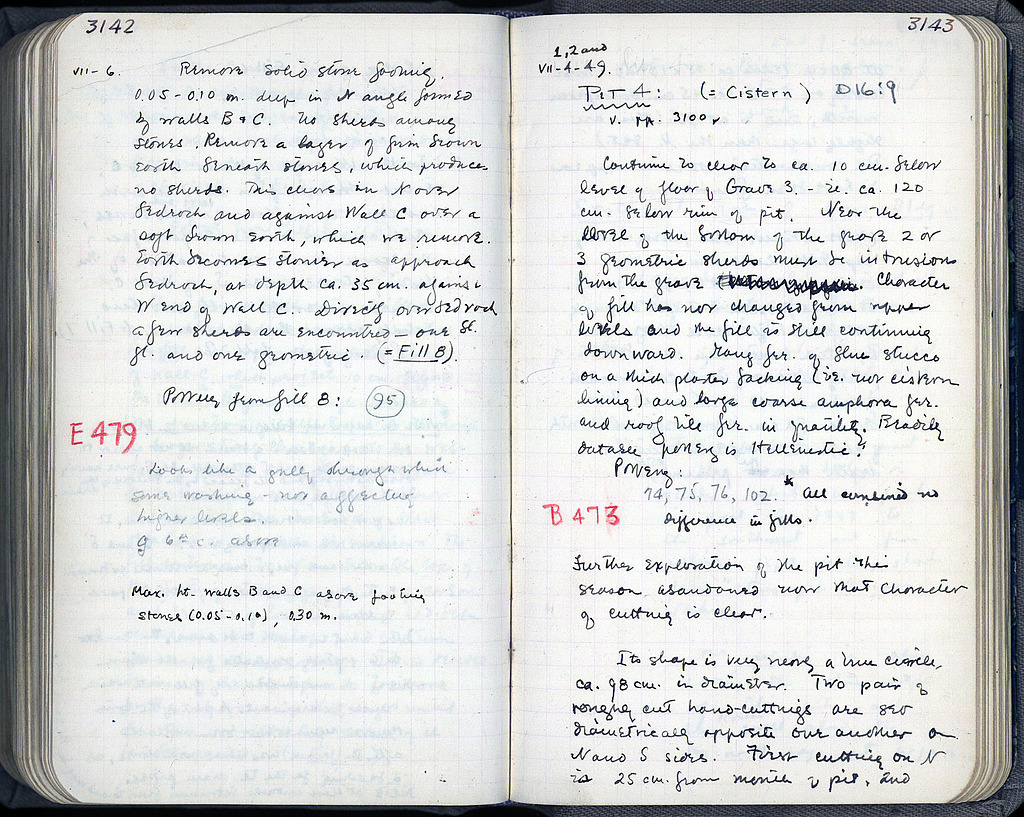 3142
VII-6. Remove solid stone footing,
0.05-0.10 m. deep in N angle formed
by walls B & C. No sherds among
stones. Remove a layer of firm brown
earth beneath stones, which produces
no sherds. This clears in N over
bedrock and against Wall C over a
soft brown earth, which we remove.
Earth becomes stonier as approach
bedrock, at depth ca. 35 cm. against
W end of Wall C. Directly over bedrock
a few sherds are encountered - one bl.
gl. and one geometric. (= Fill B).
Pottery from fill B: 95
E 479
Looks like a gully through which
some washing - not affecting
higher levels.
6th c. above
Max. ht. walls B and C above footing
stones (0.05-0.10), 0.30 m.
3143
1, 2 and
VII-4-49.
PIT 4: (= Cistern) D16:9
v. pp. 3100,
Continue to clear to ca. 10 cm. below
level of floor of Grave 3. - i.e. ca. 120
cm. below rim of pit. Near the
level of the bottom of the grave 2 or
3 geometric sherds must be intrusions
from the grave. Character
of fill has not changed from upper
levels and the fill is still continuing
downward. Many frr. of blue stucco
on a thick plaster backing (i.e. not cistern
lining) and large coarse amphora frr.
and roof tile frr. in quantity. Readily
datable pottery is Hellenistic.*
Pottery:
74, 75, 76, 102. * All combined no
difference in fills.
B 473
Further exploration of the pit this
season abandoned now that character
of cutting is clear.
Its shape is very nearly a true circle,
ca. 98 cm. in diameter. Two pair of
roughly cut hand-cuttings are set
diametrically opposite one another on
N and S sides. First cutting on N
is 25 cm. from mouth of pit, 2nd